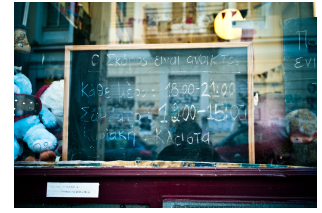 Ο Σκόρος είναι ανοικτός
Κάθε μέρα 18:00-21:00
Σάββατο 12:00-15:00
Κυριακή Κλειστά
Π
ΕΝΙ